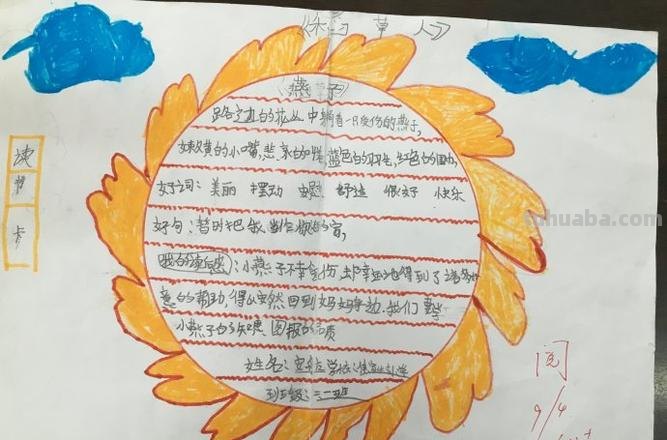 《稻草人》
燕子
路旁边的花丛中躺着一只受伤的燕子,
嫩黄的小嘴,悲哀的 蓝色的羽毛,红色的
读书卡
好词: 美丽 摆动 舒适 很好 快乐
好句:暂时把我当作你的
我的读后感:小燕子不幸受伤,却幸运地得到了
意的帮助,得以安然回到妈妈身边,我们要学
小燕子的知恩图报的品质
姓名: 学校: 小学
班级:三二班
阅
9/4
tuhuaba.com